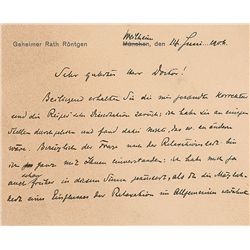 Weilheim
Geheimer Rath Röntgen München, den 14. Juni 1906.
Sehr geehrter Herr Doctor!
Beiliegend erhalten Sie die mir gesandte Korrektur
und die Dissertation zurück; ich habe sie an einigen
Stellen durchgesehen und fand dazu nichts, das zu ändern
wäre. Bezüglich der Frage nach der Relaxationszeit bin
ich ganz mit Ihnen einverstanden; ich habe mich ja
schon
früher in diesem Sinne geäussert, als Sie die Möglich-
keit eines Einflusses der Relaxation im Allgemeinen